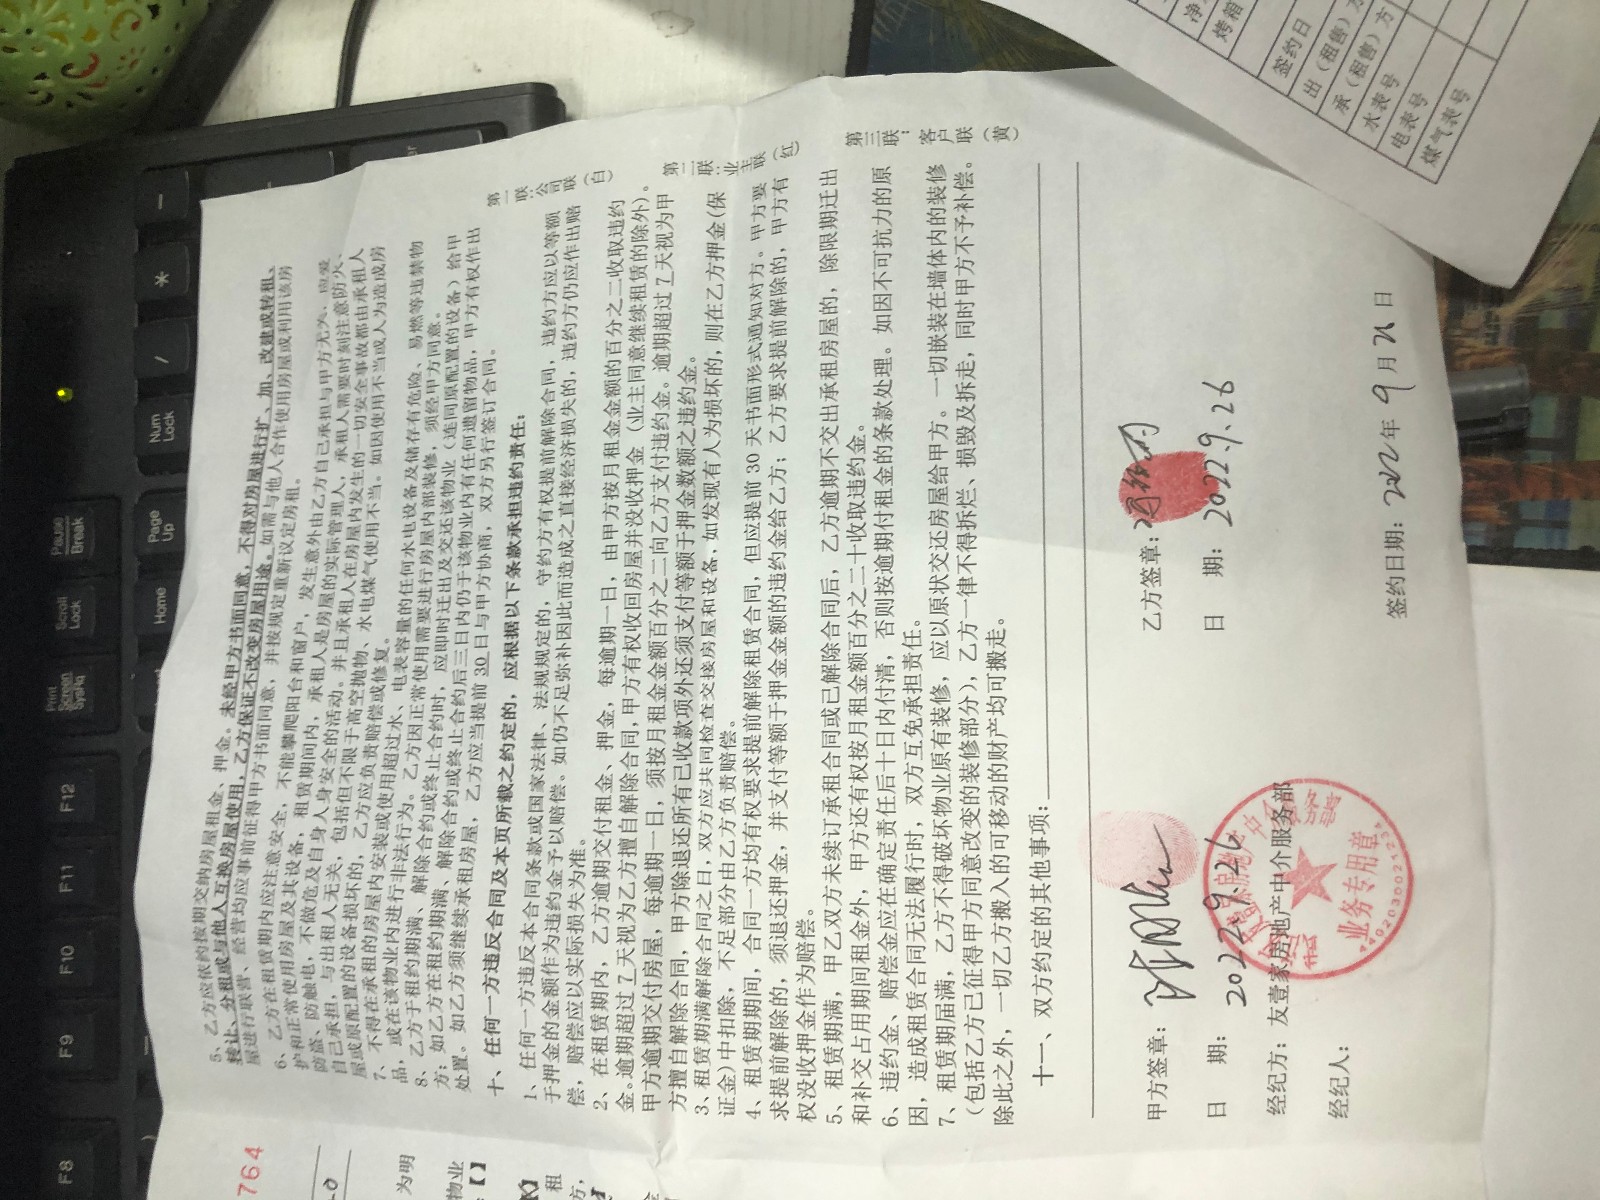 5、乙方应依约按期交纳房屋租金、押金。未经甲方书面同意，不得对房屋进行扩、加、改建或转租、
转让、分租或与他人互换房屋使用，乙方保证不改变房屋用途。如需与他人合作使用房屋或利用该房
屋进行联营、经营均应事前征得甲方书面同意，并按规定重新议定房租。
6、乙方在租赁期内应注意安全，不能攀爬阳台和窗户，发生意外由乙方自己承担与甲方无关、应爱
护和正常使用房屋及其设备，租赁期间内，承租人是房屋的实际管理人，承租人需要时刻注意防火、
防盗、防触电，不做危及自身人身安全的活动。并且承租人在房屋内发生的一切安全事故都由承租人
自己承担，与出租人无关，包括但不限于高空抛物、水电煤气使用不当。如因使用不当或人为造成房
屋或原配置的设备损坏的，乙方应负责赔偿或修复。
7、不得在承租的房屋内安装或使用超过水、电表容量的任何水电设备及储存有危险、易燃等违禁物
品，或在该物业内进行非法行为。乙方因正常使用需要进行房屋内部装修，须经甲方同意。
8、乙方于租约期满、解除合约或终止合约时，应即时迁出及交还该物业（连同原配置的设备）给甲
方；如乙方在租约期满，解除合约或终止合约后三日内仍于该物业内有任何遗留物品，甲方有权作出
处置。如乙方须继续承租房屋，乙方应当提前 30 日与甲方协商，双方另行签订合同。
十、任何一方违反合同及本页所载之约定的，应根据以下条款承担违约责任：
1、任何一方违反本合同条款或国家法律、法规规定的，守约方有权提前解除合同，违约方应以等额
于押金的金额作为违约金予以赔偿。如仍不足弥补因此而造成之直接经济损失的，违约方仍应作出赔
偿，赔偿应以实际损失为准。
2、在租赁期内，乙方逾期交付租金、押金，每逾期一日，由甲方按月租金金额的百分之二收取违约
金。逾期超过 7 天视为乙方擅自解除合同，甲方有权收回房屋并没收押金（业主同意继续租赁的除外）。
甲方逾期交付房屋，每逾期一日，须按月租金金额百分之二向乙方支付违约金。逾期超过 7 天视为甲
方擅自解除合同，甲方除退还所有已收款项外还须支付等额于押金数额之违约金。
3、租赁期满解除合同之日，双方应共同检查交接房屋和设备，如发现有人为损坏的，则在乙方押金（保
证金）中扣除，不足部分由乙方负责赔偿。
4、租赁期期间，合同一方均有权要求提前解除租赁合同，但应提前 30 天书面形式通知对方。甲方要
求提前解除的，须退还押金，并支付等额于押金金额的违约金给乙方；乙方要求提前解除的，甲方有
权没收押金作为赔偿。
5、租赁期满，甲乙双方未续订承租合同或已解除合同后，乙方逾期不交出承租房屋的，除限期迁出
和补交占用期间租金外，甲方还有权按月租金额百分之二十收取违约金。
6、违约金、赔偿金应在确定责任后十日内付清，否则按逾期付租金的条款处理。如因不可抗力的原
因，造成租赁合同无法履行时，双方互免承担责任。
7、租赁期届满，乙方不得破坏物业原有装修，应以原状交还房屋给甲方。一切嵌装在墙体内的装修
（包括乙方已征得甲方同意改变的装修部分），乙方一律不得拆烂、损毁及拆走，同时甲方不予补偿。
除此之外，一切乙方搬入的可移动的财产均可搬走。
十一、双方约定的其他事项：
甲方签章：
乙方签章：
日 期：2022.9.26
日 期：2022.9.26
经纪方：友壹家房地产中介服务部
业务专用章
经纪人：
签约日期：2022年 9 月 26 日
第一联：公司联（白）
第二联：业主联（红）
第三联：客户联（黄）
764
为明
物业
签约日
出（租售）方
承（租售）方
水表号
电表号
煤气表号
烤箱
Pause
Break
Scroll
Lock
Print
Screen
SysRq
Page
Up
Home
Num
Lock
/
*
F12
F11
F10
F9
F8